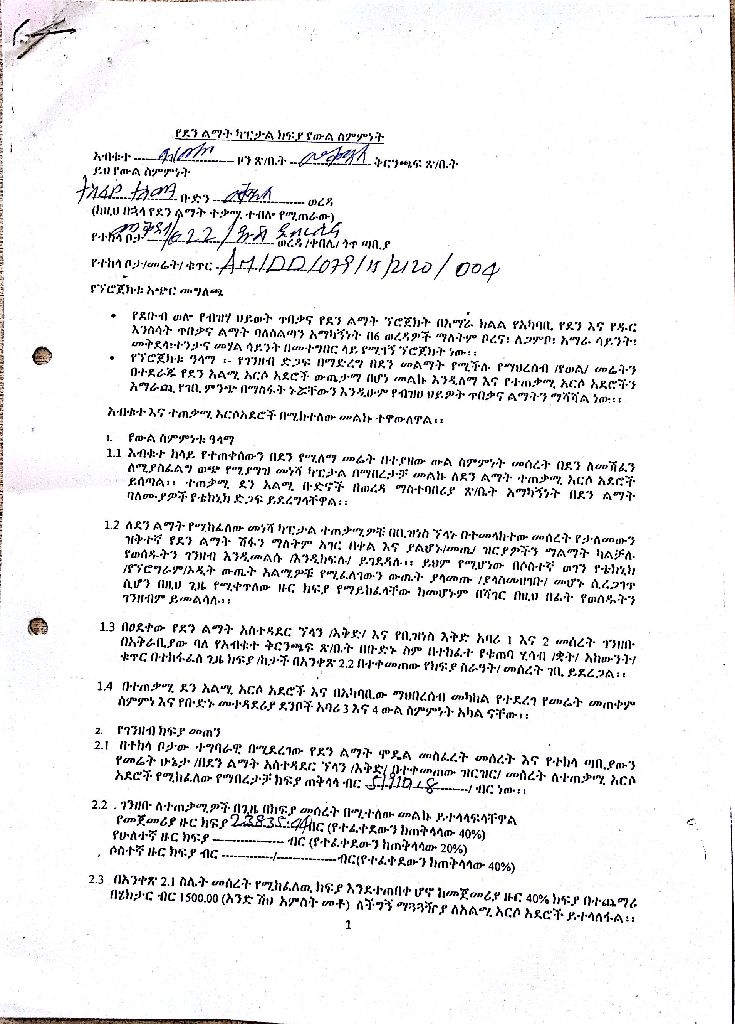 የደን ልማት ካፒታል ክፍያ የውል ስምምነት
አብቁተ ዞን ጽ/ቤት ቅርንጫፍ ጽ/ቤት
ይህ የውል ስምምነት
ቡድን ወረዳ
(ከዚህ በኋላ የደን ልማት ተቃሚ ተብሎ የሚጠራው)
የተከላ ቦታ ወረዳ /ቀበሌ/ ጎጥ ጣቢያ
የተከላ ቦታ/መሬት/ ቁጥር AM/DD/079/15/2120/004
የፕሮጀክቱ አጭር መግለጫ
• የደቡብ ወሎ የብዝሃ ህይወት ጥበቃና የደን ልማት ፕሮጀክት በአማራ ክልል የአካባቢ የደን እና የዱር
እንስሳት ጥበቃና ልማት ባለስልጣን አማካኝነት በ6 ወረዳዎች ማለትም ቦረና፣ ለጋምቦ፣ አማራ ሳይንት፣
መቅደላ፣ተንታና መሃል ሳይንት በመተግበር ላይ የሚገኝ ፕሮጀክት ነው፡፡
• የፕሮጀክቱ ዓላማ ፡- የገንዘብ ድጋፍ በማድረግ በደን መልማት የሚችሉ የማህበረሰብ /የወል/ መሬትን
በተደራጁ የደን አልሚ አርሶ አደሮች ውጤታማ በሆነ መልኩ እንዲለማ እና የተቃሚ አርሶ አደሮችን
አማራጪ የገቢ ምንጭ በማስፋት ኑሯቸውን እንዲሁም የብዝሀ ህይዎት ጥበቃና ልማትን ማሻሻል ነው፡፡
አብቁተ እና ተጠቃሚ አርሶአደሮች በሚከተለው መልኩ ተዋውለዋል፡፡
1. የውል ስምምነቱ ዓላማ
1.1 አብቁተ ከላይ የተጠቀሰውን በደን የሚለማ መሬት በተያዘው ውል ስምምነት መሰረት በደን ለመሸፈን
ለሚያስፈልግ ወጭ የሚያግዝ መነሻ ካፒታል በማበረታቻ መልኩ ለደን ልማት ተቃሚ አርሶ አደሮች
ይሰጣል፡፡ ተጠቃሚ ደን አልሚ ቡድኖች በወረዳ ማስተባበሪያ ጽ/ቤት አማካኝነት በደን ልማት
ባለሙያዎች የቴክኒክ ድጋፍ ይደረግላቸዋል፡፡
1.2 ለደን ልማት የሚከፈለው መነሻ ካፒታል ተጠቃሚዎቹ በቢዝነስ ፕላኑ በተመላከተው መሰረት የታለመውን
ዝቅተኛ የደን ልማት ሽፋን ማለትም አገር በቀል እና ያልሆኑ/መጤ/ ዝርያዎችን ማልማት ካልቻሉ
የወሰዱትን ገንዘብ እንዲመልሱ /እንዲከፍሉ/ ይገደዳሉ፡፡ ይህም የሚሆነው በሶስተኛ ወገን የቴክኒክ
/የፕሮግራም/ኦዲት ውጤት አልሚዎቹ የሚፈለገውን ውጤት ያላመጡ /ያላስመዘገቡ/ መሆኑ ሲረጋገጥ
ሲሆን በዚህ ጊዜ የሚቀጥለው ዙር ክፍያ የማይከፈላቸው ከመሆኑም በሻገር በዚህ በፊት የወሰዱትን
ገንዘብም ይመልሳሉ፡፡
1.3 በፀደቀው የደን ልማት አስተዳደር ፕላን /እቅድ/ እና የቢዝነስ እቅድ አባሪ 1 እና 2 መሰረት ገንዘቡ
በአቅራቢያው ባለ የአብቁተ ቅርንጫፍ ጽ/ቤት በቡድኑ ስም በተከፈተ የቁጠባ ሂሳብ /ቋት/ አካውንት/
ቁጥር በተከፋፈለ ጊዜ ክፍያ /ኬታች በአንቀጽ 2.2 በተቀመጠው የክፍያ ስራዓት/ መሰረት ገቢ ይደረጋል፡፡
1.4 በተጠቃሚ ደን አልሚ አርሶ አደሮች እና በአካባቢው ማህበረሰብ መካከል የተደረገ የመሬት መጠቀም
ስምምነ እና የቡድኑ መተዳደሪያ ደንቦች አባሪ 3 እና 4 ውል ስምምነት አካል ናቸው፡፡
2. የገንዘብ ክፍያ መጠን
2.1 በተከላ ቦታው ተግባራዊ በሚደረገው የደን ልማት ሞዴል መስፈረት መሰረት እና የተከላ ጣቢያውን
የመሬት ሁኔታ /በደን ልማት አስተዳደር ፕላን /እቅድ/ በተቀመጠው ዝርዝር/ መሰረት ለተጠቃሚ አርሶ
አደሮች የሚከፈለው የማበረታቻ ክፍያ ጠቅላላ ብር / ብር ነው፡፡
2.2 . ገንዘቡ ለተጠቃሚዎች በጊዜ በክፍያ መሰረት በሚተለው መልኩ ይተላለፍላቸዋል
የመጀመሪያ ዙር ክፍያ ብር (የተፈቀደውን ከጠቅላላው 40%)
የሁለተኛ ዙር ክፍያ ---------------- ብር (የተፈቀደውን ከጠቅላላው 20%)
ሶስተኛ ዙር ክፍያ ብር ------------/------------- ብር(የተፈቀደውን ከጠቅላላው 40%)
2.3 በአንቀጽ 2.1 ስሌት መሰረት የሚከፈለዉ ክፍያ እንደተጠበቀ ሆኖ ከመጀመሪያ ዙር 40% ክፍያ በተጨማሪ
በሄክታር ብር 1500.00 (አንድ ሽህ አምስት መቶ) ለችግኝ ማጓጓዣያ ለአልሚ አርሶ አደሮች ይተላለፋል፡፡
1